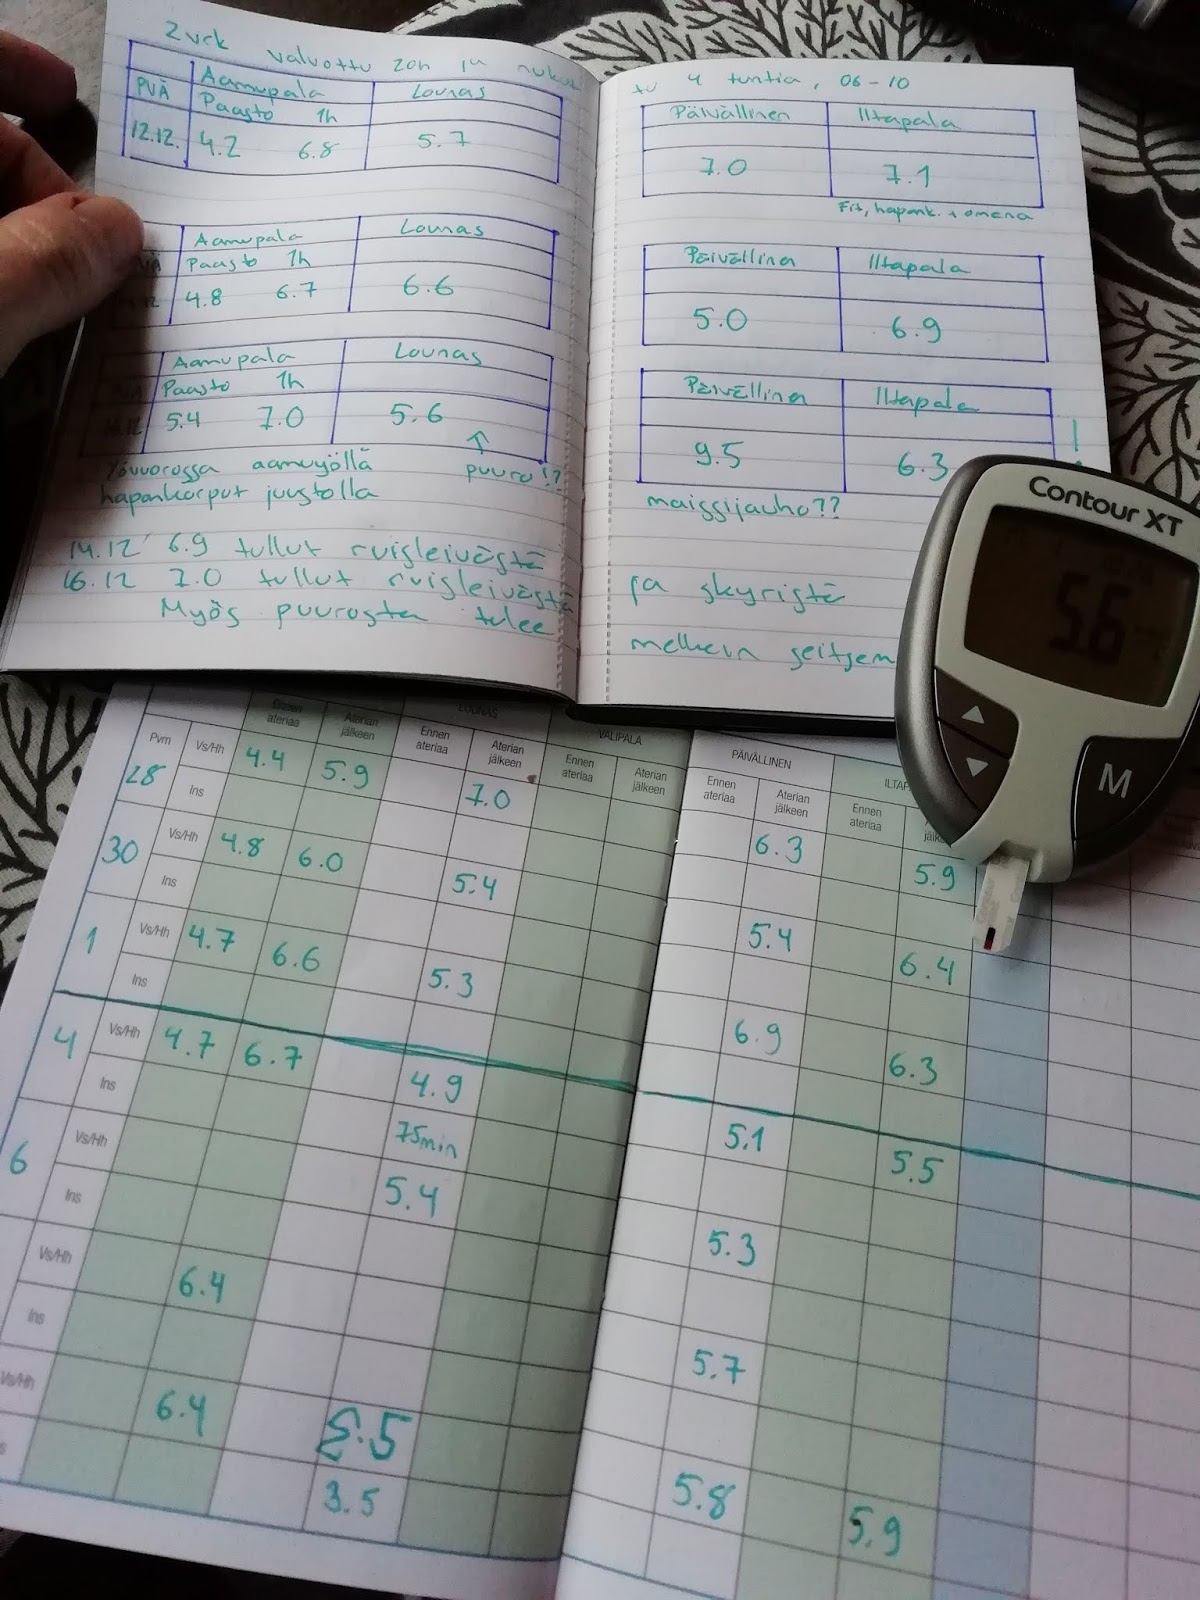 2 vrk valvottu 20h ja nukut
tu 4 tuntia, 06-10
PVÄ Aamupala Lounas
Paasto 1h
12.12. 4.2 6.8 5.7
Päivällinen Iltapala
7.0 7.1
hapank. + omena
Aamupala Lounas
Paasto 1h
4.8 6.7 6.6
Päivällinen Iltapala
5.0 6.9
Aamupala Lounas
Paasto 1h
5.4 7.0 5.6
puuro!?
Päivällinen Iltapala
9.5 6.3
!
maissijauho??
Yövuorossa aamuyöllä
hapankorput juustolla
14.12 6.9 tullut ruisleivästä
16.12 7.0 tullut ruisleivästä
ja skyristä
Myös puurosta tulee
melkein seitsem
Contour XT
5.6
M
LOUNAS VÄLIPALA PÄIVÄLLINEN
Pvm Vs/Hh Ennen ateriaa Aterian jälkeen Ennen ateriaa Aterian jälkeen Ennen ateriaa Aterian jälkeen Ennen ateriaa Aterian jälkeen Ennen ateriaa
28 4.4 5.9 7.0 6.3 5.9
Ins
30 Vs/Hh 4.8 6.0 5.4 5.4 6.4
Ins
1 Vs/Hh 4.7 6.6 5.3 6.9 6.3
Ins
4 Vs/Hh 4.7 6.7 4.9 5.1 5.5
Ins
6 Vs/Hh 75min
5.4 5.3
Ins
Vs/Hh 6.4 5.7
Ins
Vs/Hh 6.4 5.8 5.9
3.5